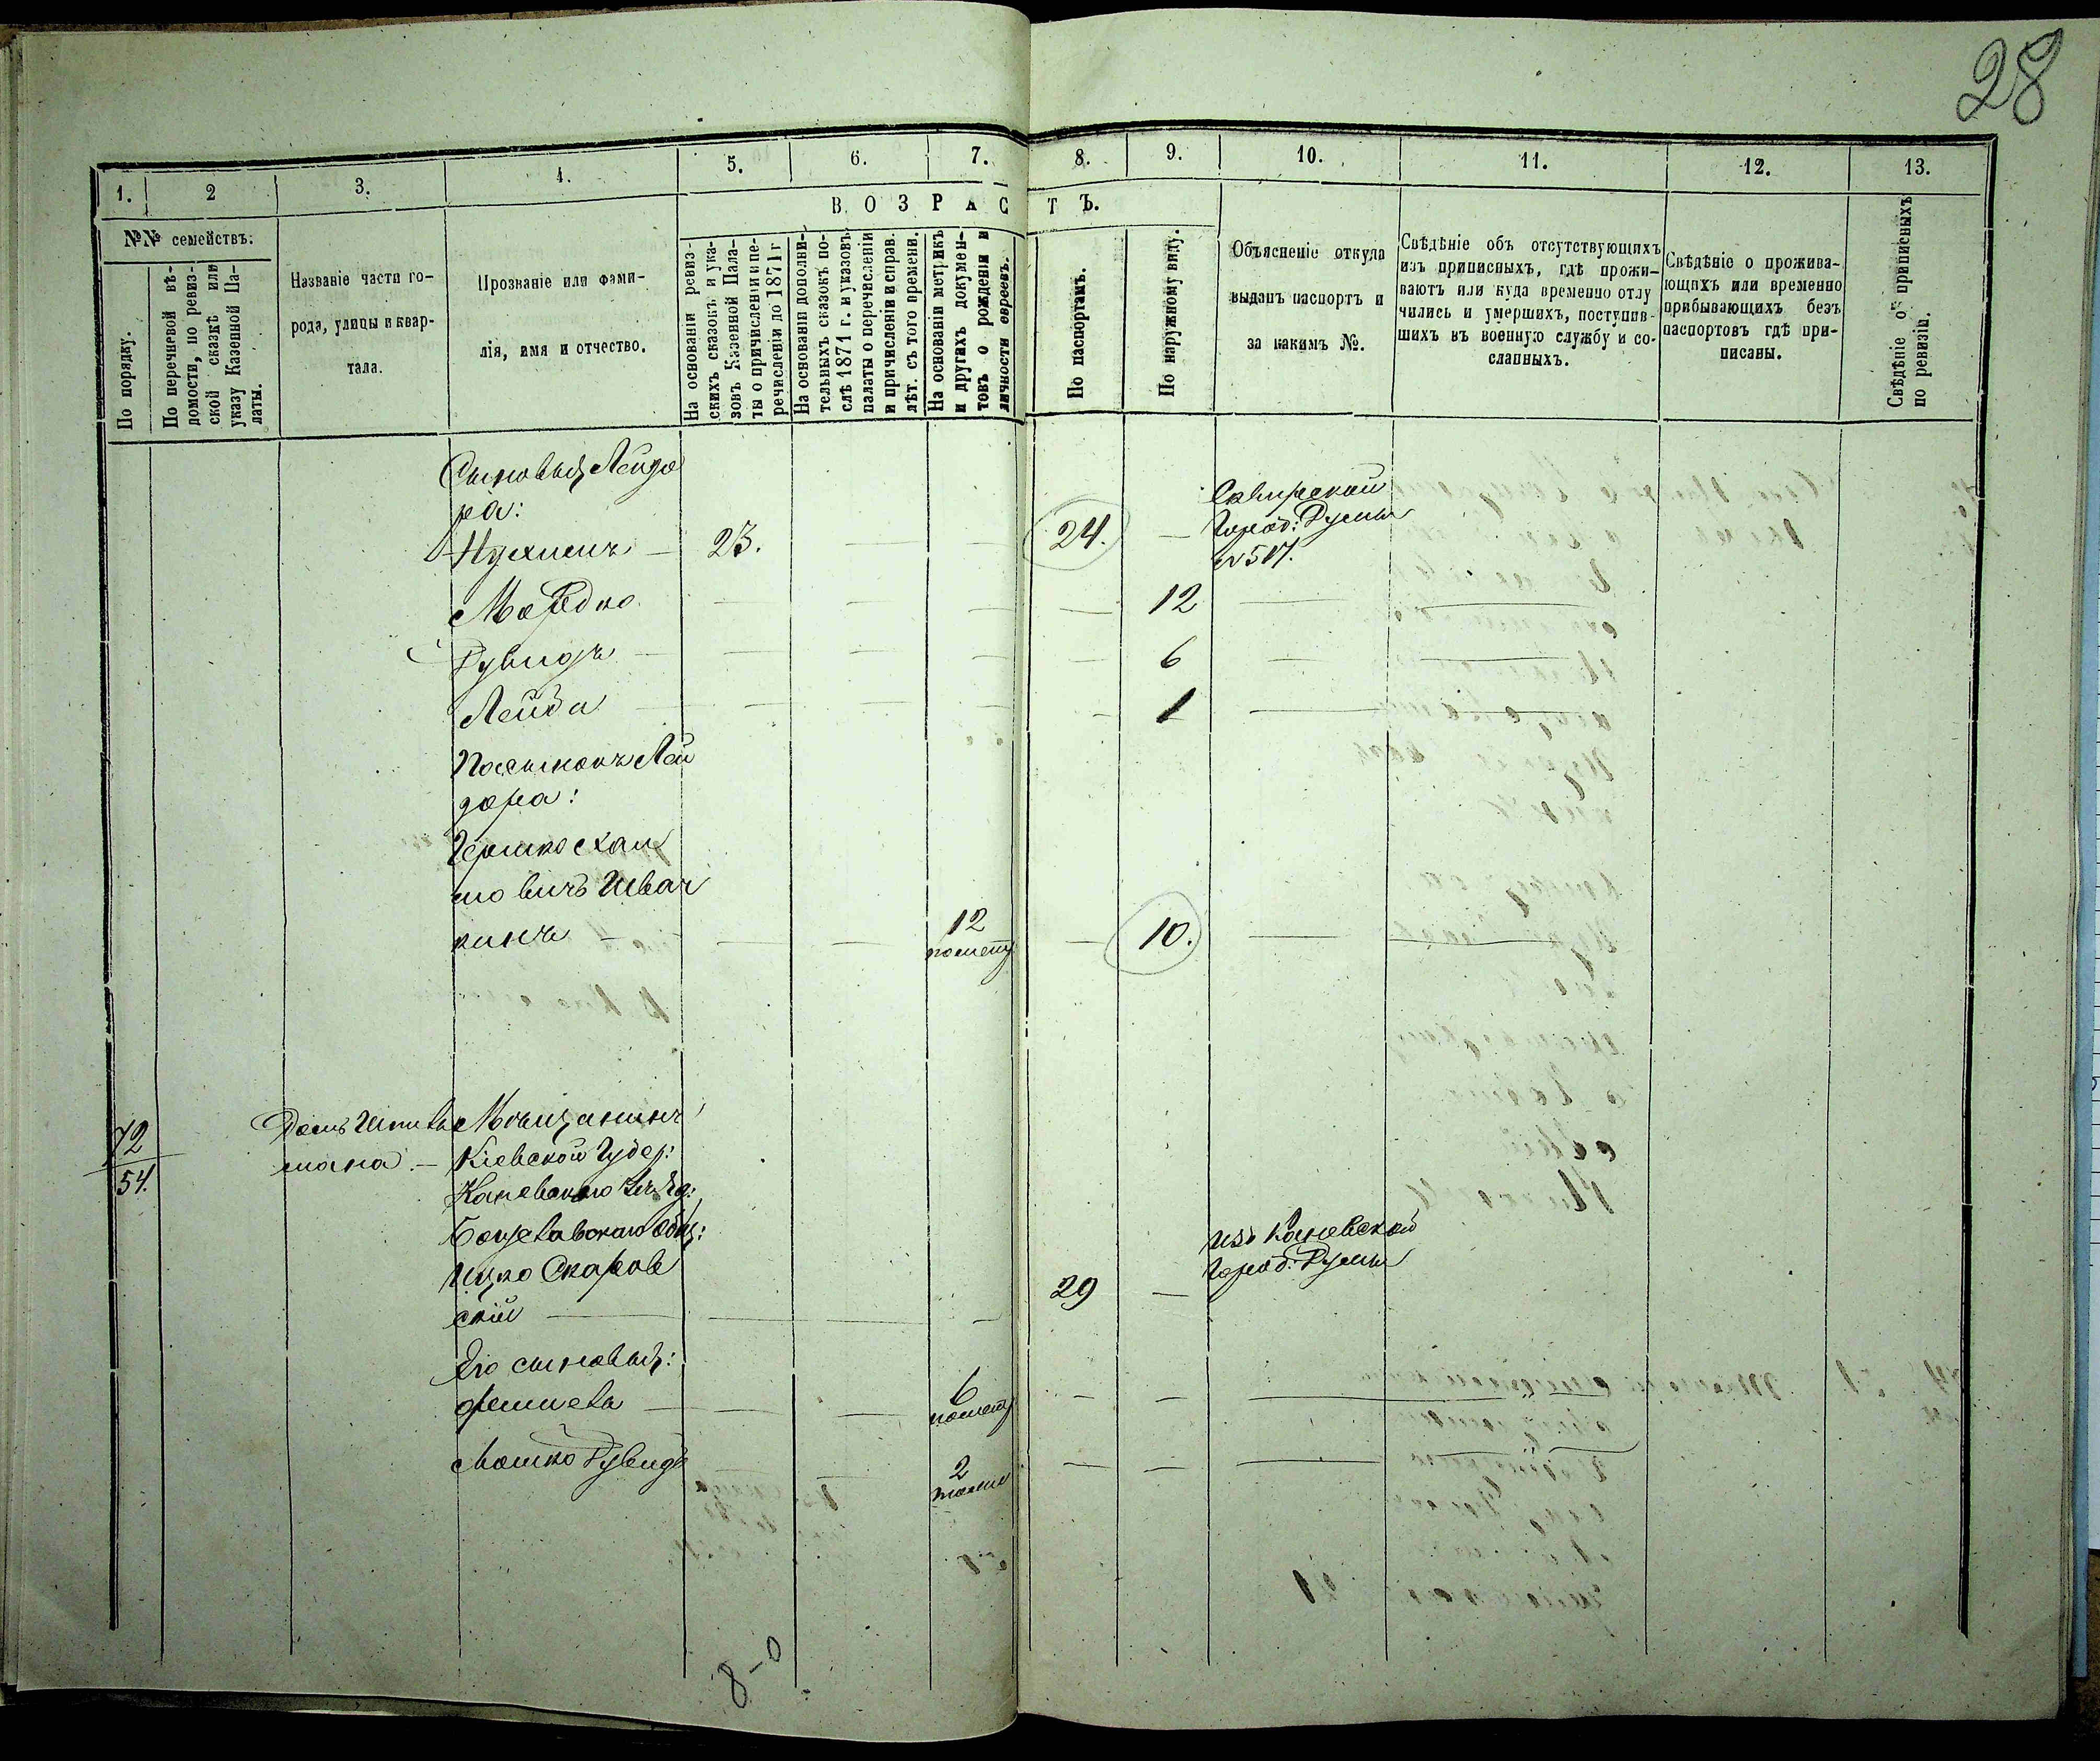 28
1. 2 3. 4. 5. 6. 7. 8. 9. 10. 11. 12. 13.
ВОЗРАСТЪ.
№№ семействъ.
По порядку.
По перечневой вѣ-
домости, по ревиз-
ской сказкѣ или
указу Казенной Па-
латы.
Названіе части го-
рода, улицы и квар-
тала.
Прозваніе или фами-
лія, имя и отчество.
На основаніи ревиз-
скихъ сказокъ и ука-
зовъ Казенной Пала-
ты о причисленіи и пе-
речисленіи до 1871 г
На основаніи дополни-
тельныхъ сказокъ по-
слѣ 1871 г. и указовъ
палаты о перечисленіи
и причисленіи и справ.
лѣт. съ того времени.
На основаніи метрикъ
и другихъ докумен-
товъ о рожденіи и
личности евреевъ.
По паспортамъ.
По наружному виду.
Объясненіе откуда
выданъ паспортъ и
за какимъ №.
Свѣдѣніе объ отсутствующихъ
изъ приписныхъ, гдѣ прожи-
ваютъ или куда временно отлу
чились и умершихъ, поступив-
шихъ въ военную службу и со-
сланныхъ.
Свѣдѣніе о прожива-
ющихъ или временно
прибывающихъ безъ
паспортовъ гдѣ при-
писаны.
Свѣдѣніе о приписныхъ
по ревизіи.
Сыновья Лейзо
ра:
Нухимъ 23. 24.
Сквирской
Город: Думы
№ 517.
Мордко 12
Рувидъ 6
Лейба 1
Пасынокъ Лей
зора:
Гершко Хаи
мовичъ Швар
кинъ 12 10.
72
54.
Домъ
Мѣщанинъ
Кіевской Губер:
Каневского
Богуславскаго Общ:
Ицко Скаров
скій 29
изъ Каневской
Город: Думы
Его сыновья:
6
Мошко Рувидъ 2
8-0